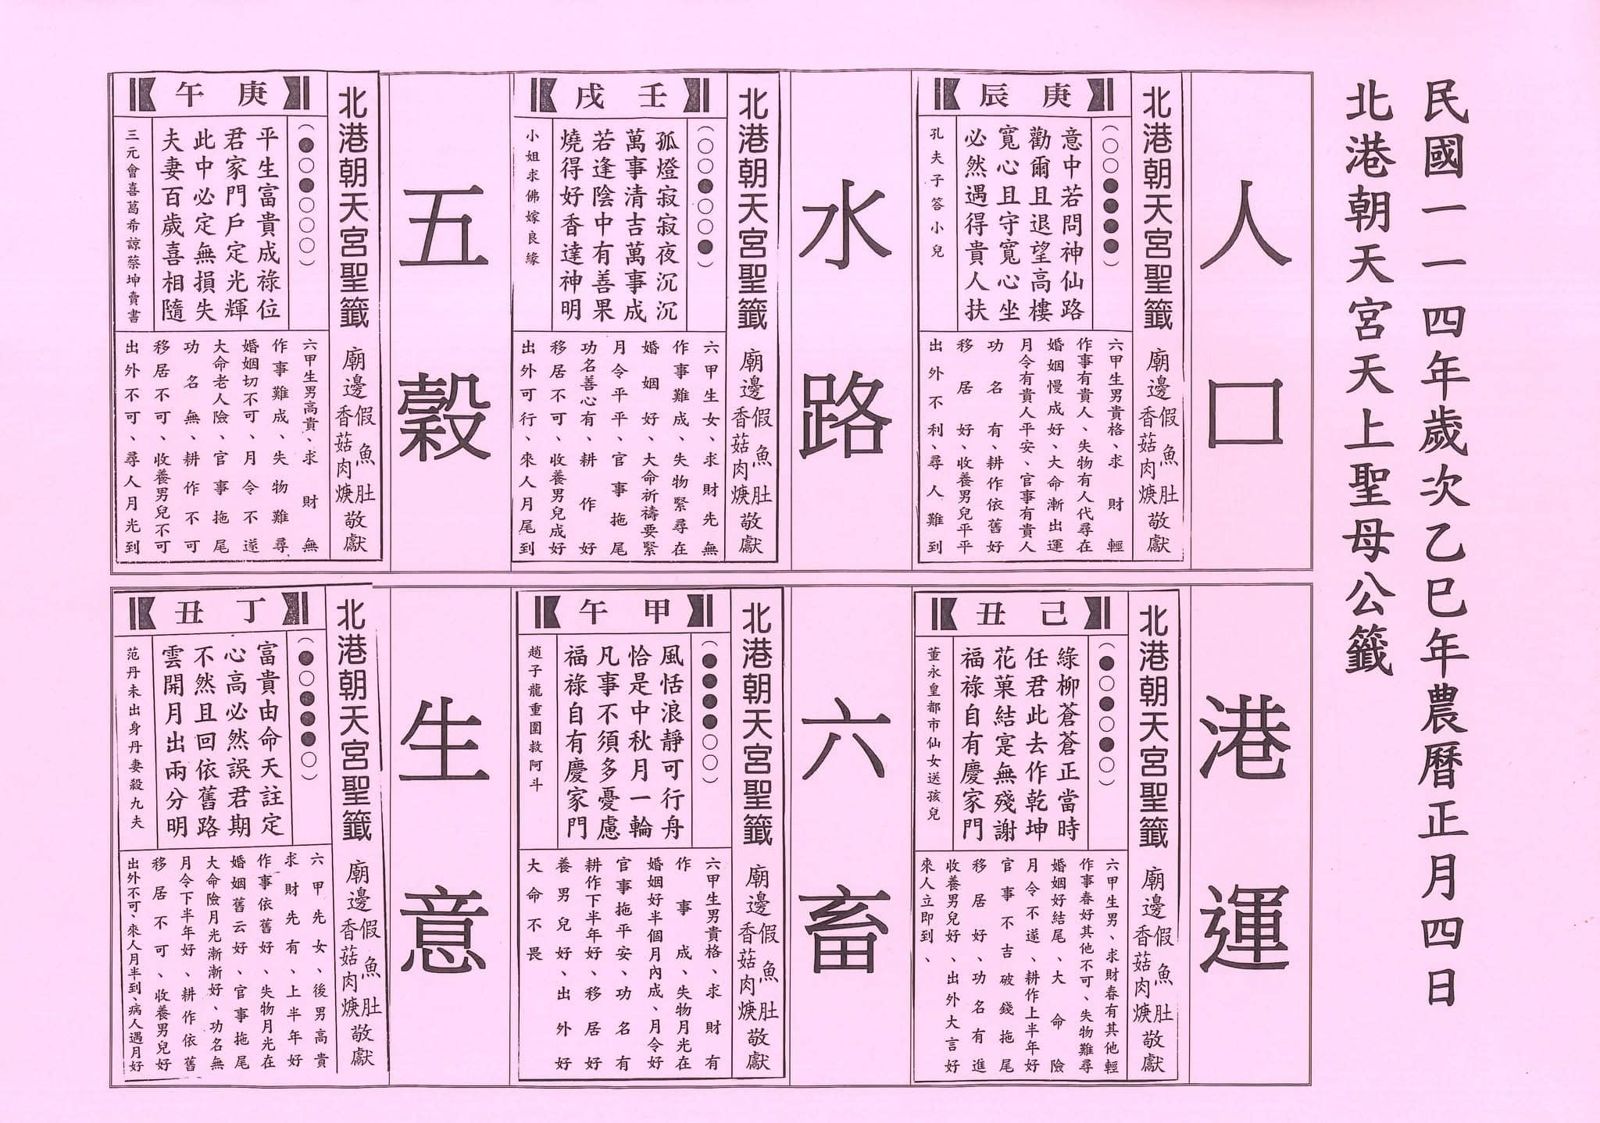 民國一一四年歲次乙巳年農曆正月四日
北港朝天宮天上聖母公籤
人口
北港朝天宮聖籤 廟邊 假魚肚 香菇肉焿 敬獻
庚辰
(○○●●●●)
意中若問神仙路
勸爾且退望高樓
寬心且守寬心坐
必然遇得貴人扶
孔夫子答小兒
六甲生男貴格、求財輕
作事有貴人、失物有人代尋在
婚姻慢成好、大命漸出運
月令有貴人平安、官事有貴人
功名有、耕作依舊好
移居好、收養男兒平平
出外不利、尋人難到
水路
北港朝天宮聖籤 廟邊 假魚肚 香菇肉焿 敬獻
壬戌
(○○●○○●)
孤燈寂寂夜沉沉
萬事清吉萬事成
若逢陰中有善果
燒得好香達神明
小姐求佛嫁良緣
六甲生女、求財先無
作事難成、失物緊尋在
婚姻好、大命祈禱要緊
月令平平、官事拖尾
功名善心有、耕作好
移居不可、收養男兒成好
出外可行、來人月尾到
五穀
北港朝天宮聖籤 廟邊 假魚肚 香菇肉焿 敬獻
庚午
(●○●○○○)
平生富貴成祿位
君家門戶定光輝
此中必定無損失
夫妻百歲喜相隨
三元會喜葛希諒蔡坤賣書
六甲生男高貴、求財無
作事難成、失物難尋
婚姻切不可、月令不遂
大命老人險、官事拖尾
功名無、耕作不可
移居不可、收養男兒不可
出外不可、尋人月光到
港運
北港朝天宮聖籤 廟邊 假魚肚 香菇肉焿 敬獻
己丑
(●○●○●○)
綠柳蒼蒼正當時
任君此去作乾坤
花菓結寔無殘謝
福祿自有慶家門
董永皇都市仙女送孩兒
六甲生男、求財春有其他輕
作事春好其他不可、失物難尋
婚姻好結尾、大命險
月令不遂、耕作上半年好
官事不吉破錢拖尾
移居好、功名有進
收養男兒好、出外大吉好
來人立即到、
六畜
北港朝天宮聖籤 廟邊 假魚肚 香菇肉焿 敬獻
甲午
(●●●●○○)
風恬浪靜可行舟
恰是中秋月一輪
凡事不須多憂慮
福祿自有慶家門
趙子龍重圍救阿斗
六甲生男貴格、求財有
作事成、失物月光在
婚姻好半個月內成、月令好
官事拖平安、功名有
耕作下半年好、移居好
養男兒好、出外好
大命不畏
生意
北港朝天宮聖籤 廟邊 假魚肚 香菇肉焿 敬獻
丁丑
(●○●●●○)
富貴由命天註定
心高必然誤君期
不然且回依舊路
雲開月出兩分明
范丹未出身丹妻殺九夫
六甲先女、後男高貴
求財先有、上半年好
作事依舊好、失物月光在
婚姻舊云好、官事拖尾
大命險月光漸漸好、功名無
月令下半年好、耕作依舊
移居不可、收養男兒好
出外不可、來人月半到、病人過月好